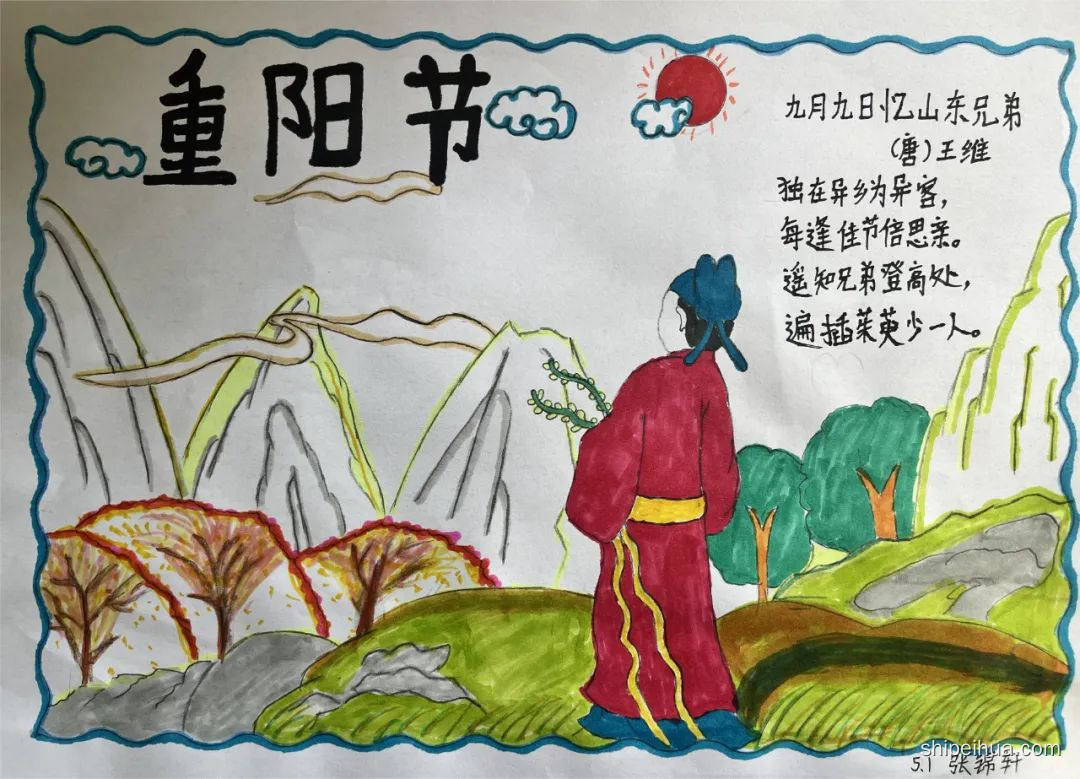 重阳节
九月九日忆山东兄弟
(唐)王维
独在异乡为异客，
每逢佳节倍思亲。
遥知兄弟登高处，
遍插茱萸少一人。
shipeihua.com
5.1 张锦轩